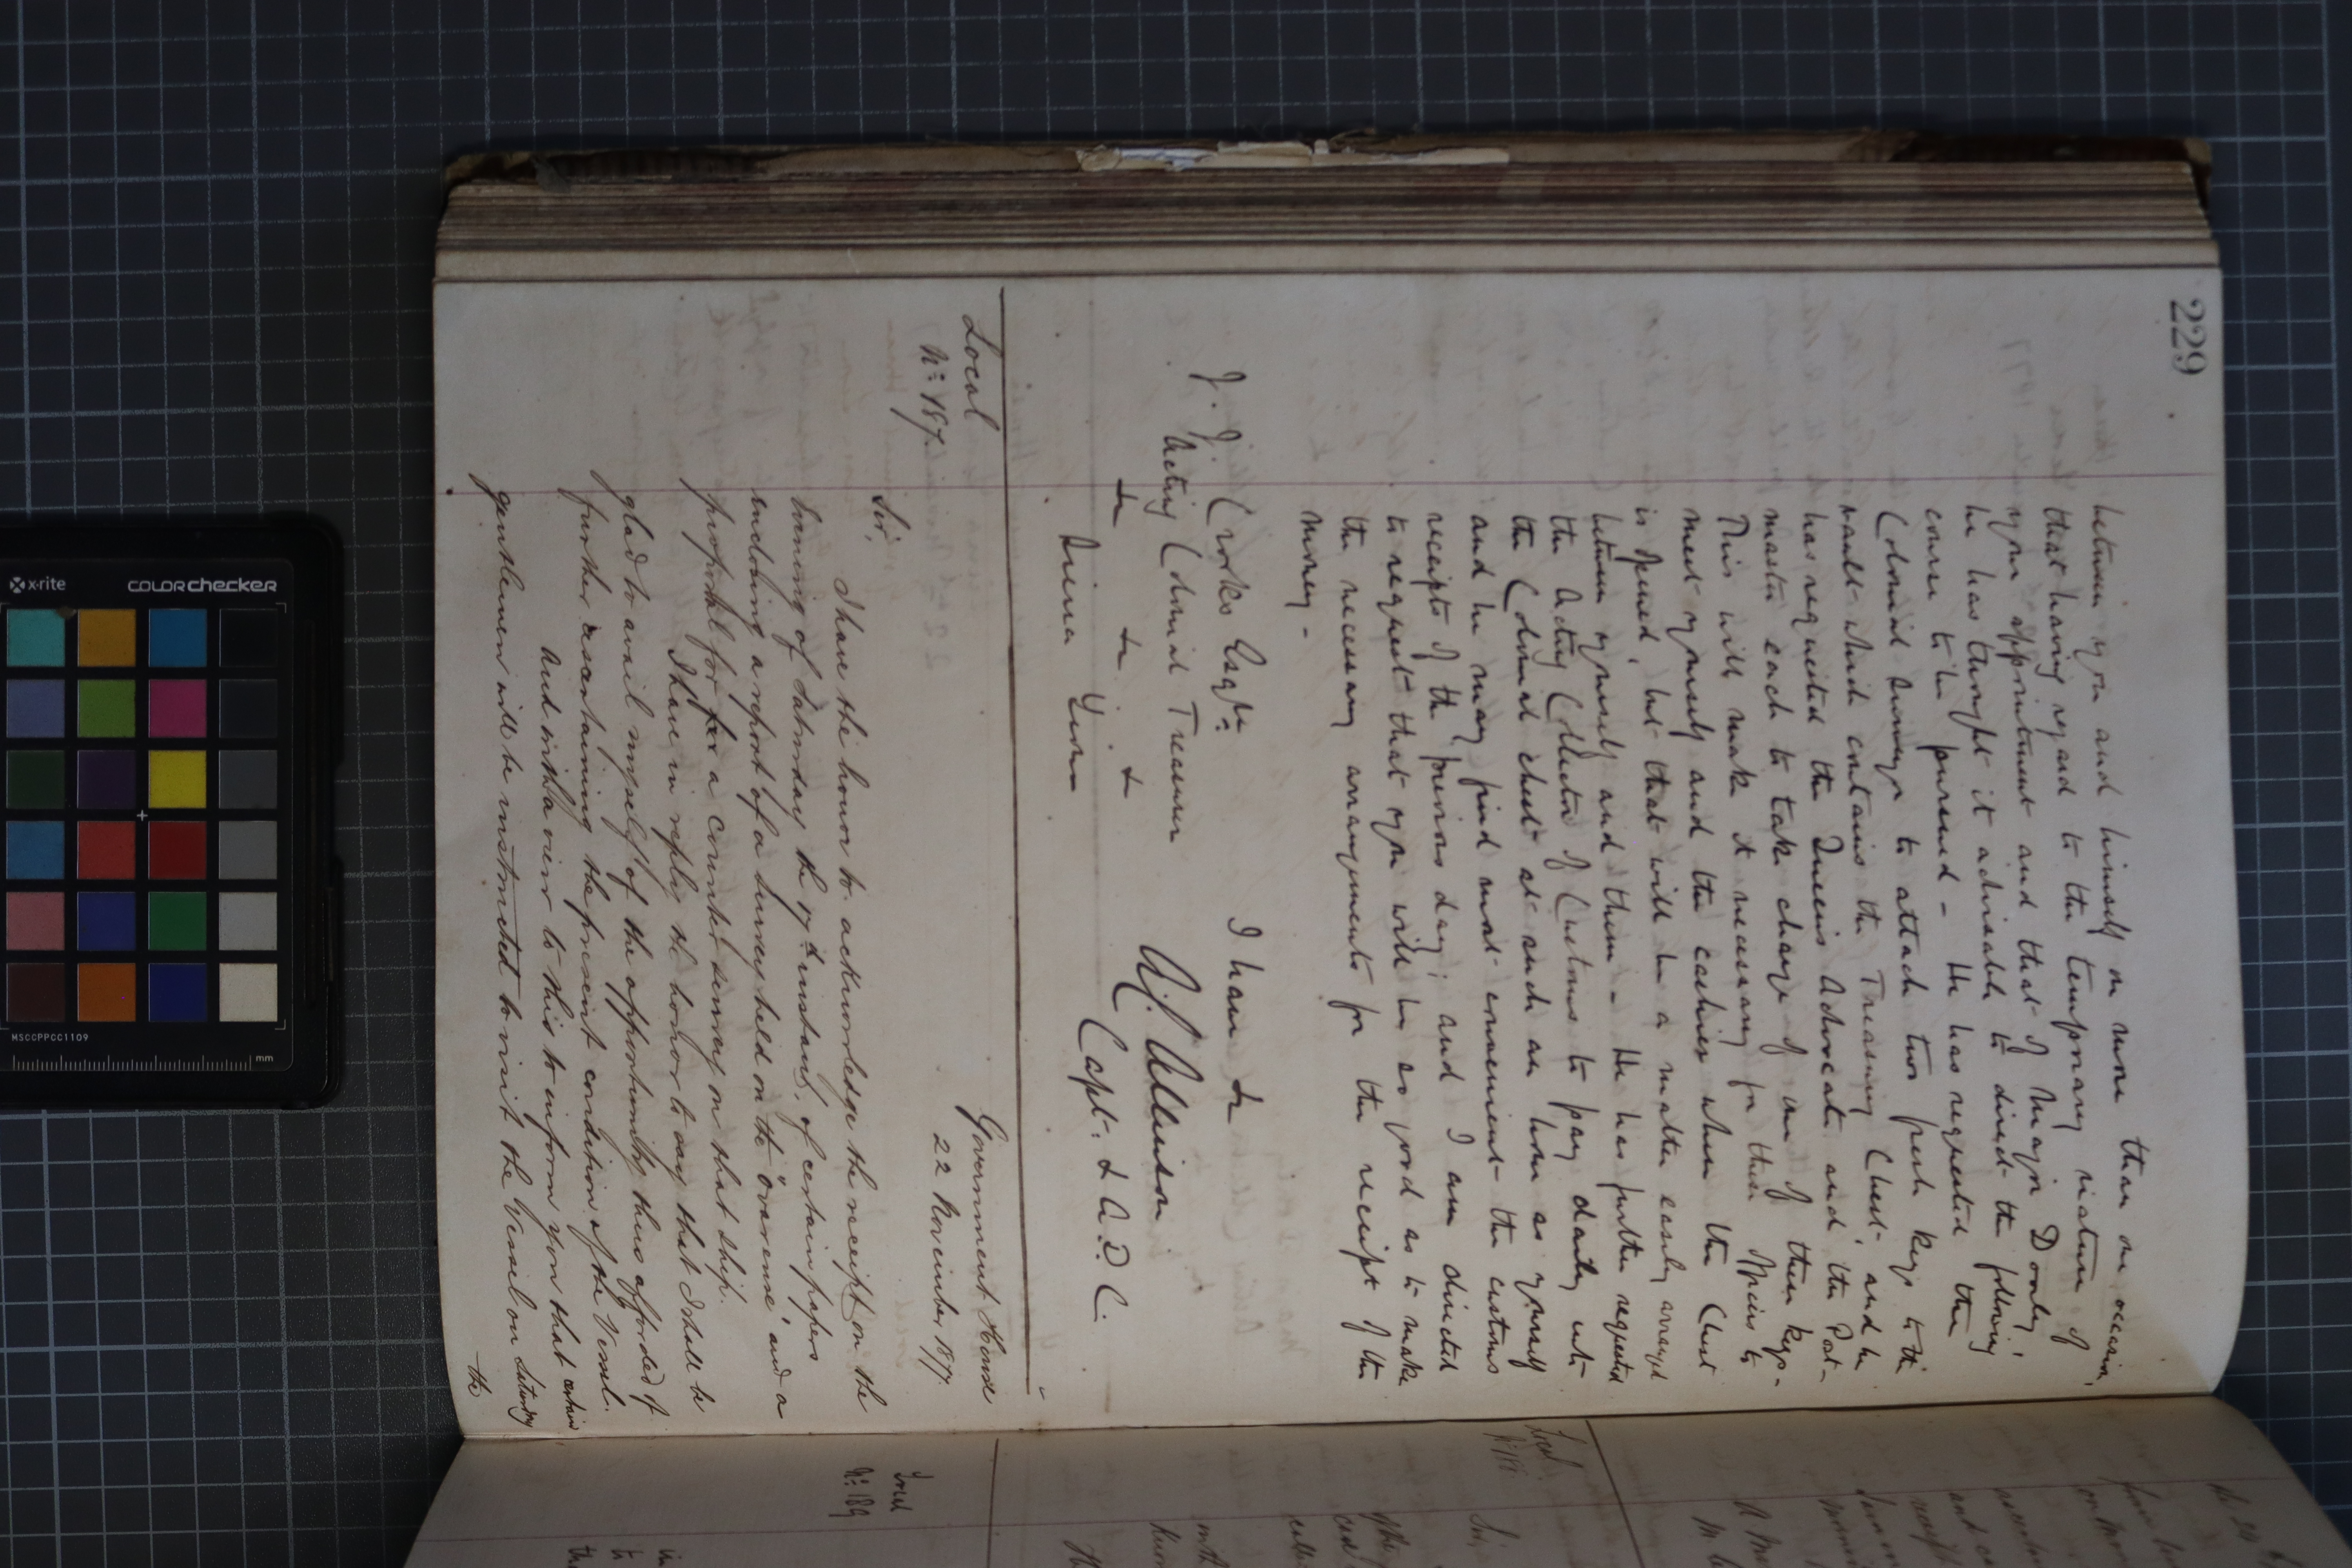 229
between you and himself on more than one occasion,
that having regard to the temporary nature of
your appointment and that of Major Dooley,
he has thought it advisable to direct the following
course to be pursued - He has requested the
Colonial Surveyor to attach two fresh keys to the
vault which contains the Treasury Chest, and he
has requested the Queen's Advocate and the Post-
master each to take charge of one of these keys.-
This will make it necessary for these Officers to
meet yourself and the cashier when the Chest
is opened, but that will be a matter easily arranged
between yourself and them - He has further requested
the Acting Collector of Customs to pay daily into
the Colonial chest at such an hour as yourself
and he may find most convenient the customs
receipts of the previous day; and I am directed
to request that you will be so good as to make
the necessary arrangements for the receipt of this
money -
I have &
J. J. Crooks Esqre:
Acting Colonial Treasurer
A. L. Allinson
Capt. & A.D.C.
& & &
Sierra Leone
Local
No: 187
Government House
22 November 1877
Sir,
I have the honor to acknowledge the receipt on the
morning of Saturday the 17th instant, of certain papers
enclosing a report of a survey held on the "Ovarense", and a
proposal for a counter survey on that ship.
I have in reply the honor to say that I shall be
glad to avail myself of the opportunity thus afforded of
further ascertaining the present condition of the Vessel.
And with a view to this to inform you that certain
gentlemen will be instructed to visit the Vessel on Saturday
the
Local
No: 189
Local
Sir,